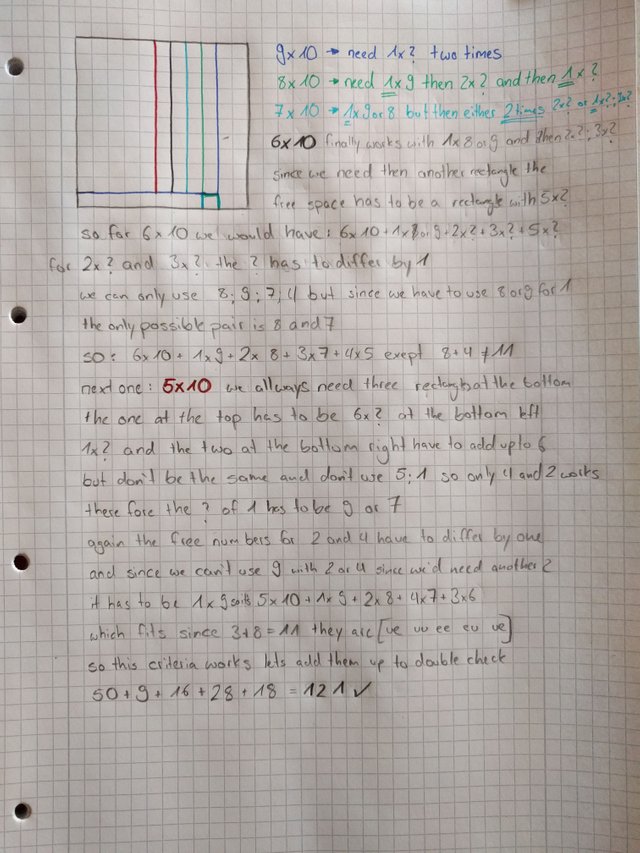 9x10 → need 1x? two times
8x10 → need 1x9 then 2x? and then 1x?
7x10 → 1x9 or 8 but then either 2 times 2x? or 1x?; 3x?
6x10 finally works with 1x8 or 9 and then 2x?; 3x?
since we need then another rectangle the
free space has to be a rectangle with 5x?
so for 6x10 we would have: 6x10 + 1x8 or 9 + 2x? + 3x? + 5x?
for 2x? and 3x? the ? has to differ by 1
we can only use 8; 9; 7; 4 but since we have to use 8 or 9 for 1
the only possible pair is 8 and 7
so: 6x10 + 1x9 + 2x8 + 3x7 + 4x5 exept 8+4 ≠ 11
next one: 5x10 we allways need three rectangls at the bottom
the one at the top has to be 6x? at the bottom left
1x? and the two at the bottom right have to add up to 6
but don't be the same and don't use 5;1 so only 4 and 2 works
there fore the ? of 1 has to be 9 or 7
again the free numbers for 2 and 4 have to differ by one
and since we can't use 9 with 2 or 4 since we'd need another 2
it has to be 1x9 so its 5x10 + 1x9 + 2x8 + 4x7 + 3x6
which fits since 3+8=11 they are [ue uu ee eu ue]
so this criteria works lets add them up to double check
50 + 9 + 16 + 28 + 18 = 121 ✓